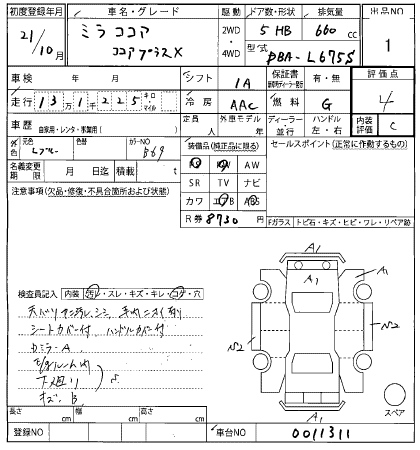 初度登録年月 車名・グレード 駆動 ドア数・形状 排気量 出品NO
21/10月 ミラ ココア 2WD・4WD 5 HB 660 cc 1
ココア プラス X 型式 DBA-L675S
車検 年 月 シフト IA 保証書 有・無 評価点
走行 13万1千225 キロ・マイル 冷房 AAC 燃料 G 4
車歴 自家用・レンタ・事業用( ) 定員 人 外車モデル 年 ディーラー・並行 ハンドル 左・右 内装評価 C
外色 元色 色替 カラーNO B69
装備品(純正品に限る) セールスポイント(正常に作動するもの)
AW
名義変更期限 月 日迄 積載 t SR TV ナビ
注意事項(欠品・修復・不具合箇所および状態) カワ エアB
R券 8730 Fガラス トビ石・キズ・ヒビ・ワレ・リペア跡
A1
A1 A
検査員記入 内装 汚レ・スレ・キズ・キレ・コゲ・穴
シートカバー付 ハンドルカバー付
Dミラー A
下廻り
キズ、B
スペア
A1
長さ cm 幅 cm 高さ cm
登録NO 車台NO 0011311